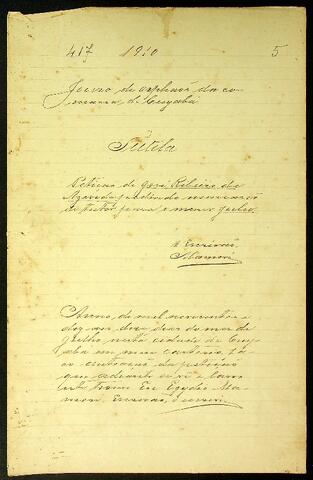 417 1910 5
Juizo de orphãos da co-
marca de Cuyabá
Tutela
Petição de José Ribeiro de
Azevedo pedindo nomeação
de tutor para o menor
O Escrivão
Anno de mil novecentos e
dez aos doze dias do mez de
Julho, nesta cidade de Cuy-
abá em meu cartorio, fa-
ço autuação da petição
que adiante se vê e lavro
este termo. Eu
Escrivão, o escrevi.